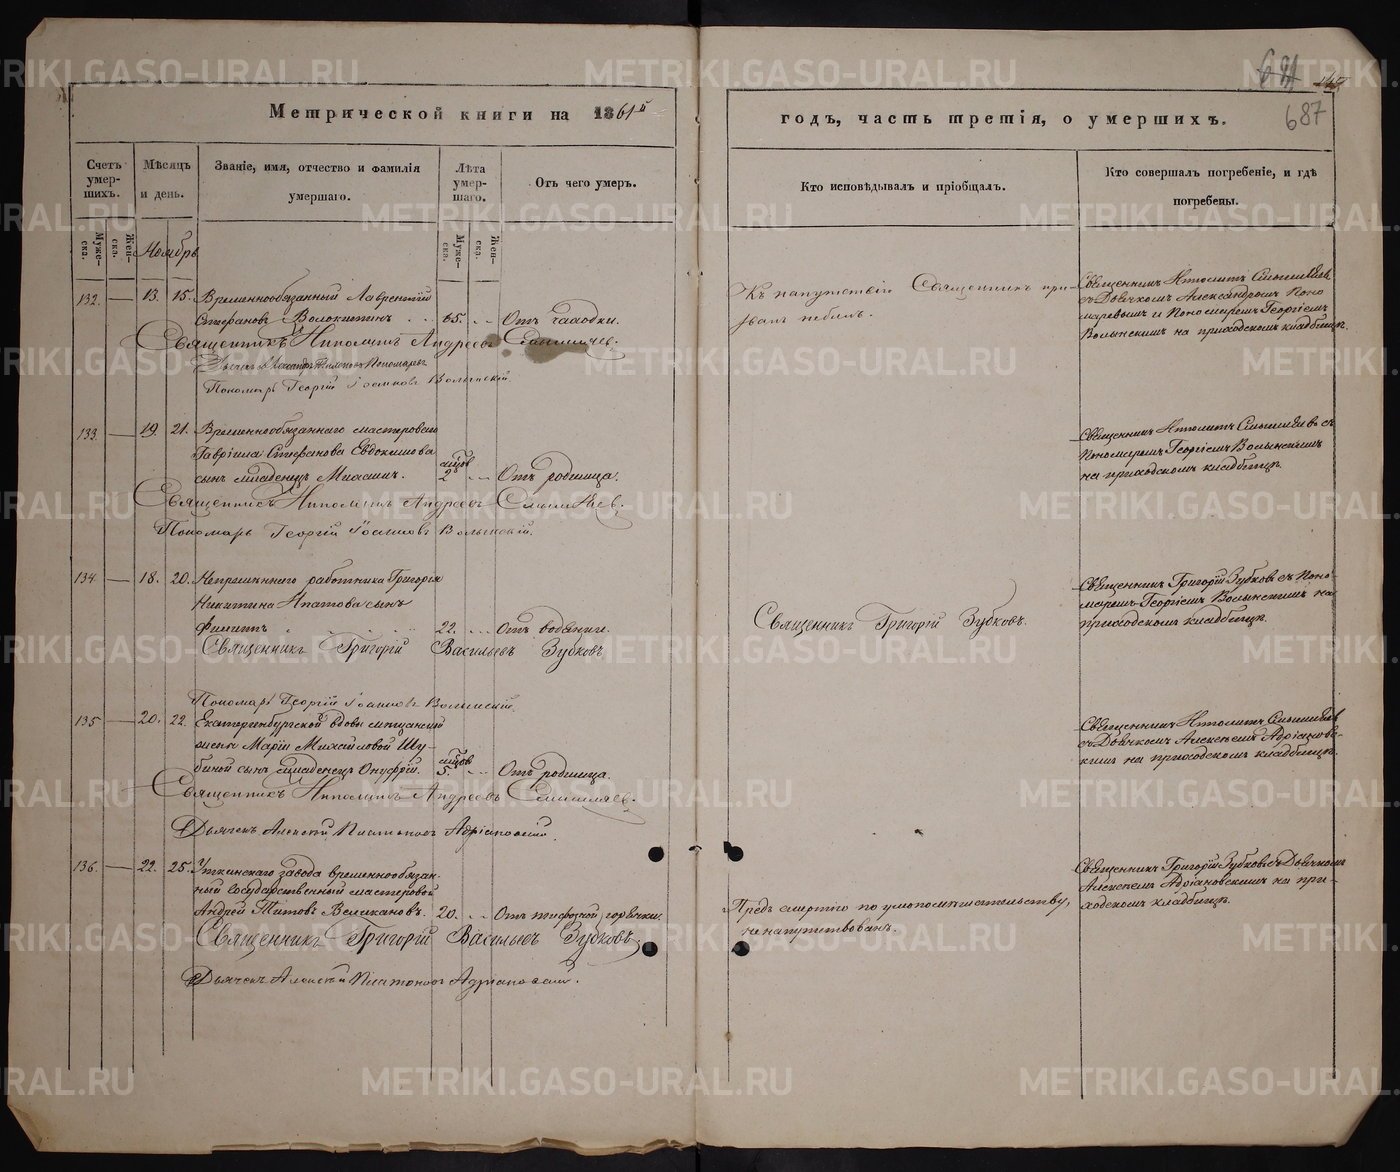 Метрической книги на 1861й
годъ, часть третія, о умершихъ.
687
Счетъ умер-шихъ.
Мѣсяцъ и день.
Званіе, имя, отчество и фамилія умершаго.
Лѣта умер-шаго.
Отъ чего умеръ.
Кто исповѣдывалъ и пріобщалъ.
Кто совершалъ погребеніе, и гдѣ погребены.
Муже-ска.
Жен-ска.
Муже-ска.
Жен-ска.
Ноябрь
132. — 13. 15. Временнообязанный Лаврентій
Стефановъ Волокитинъ . . 65. . . Отъ чаходки.
Священникъ Ипполитъ Андреевъ
Пономарь Георгій Іоанновъ Волынскій
Къ напутствію Священникъ при-
званъ небылъ.
Священникъ Ипполитъ
съ Дьячкомъ Александромъ Поно
маревымъ и Пономаремъ Георгіемъ
Волынскимъ на приходскомъ кладбищѣ.
133. — 19. 21. Временнообязаннаго мастероваго
Гавріила Стефанова Евдокимова
сынъ младенецъ Михаилъ. 2 . . Отъ родимца.
Священникъ Ипполитъ Андреевъ
Пономарь Георгій Іоанновъ Волынскій.
Священникъ Ипполитъ съ
Пономаремъ Георгіемъ Волынскимъ
на приходскомъ кладбищѣ.
134. — 18. 20. Непремѣннаго работника Григорія
Никитина Ипатова сынъ
Филиппъ 22. . . Отъ водяниги.
Священникъ Григорій Васильевъ Зубковъ
Пономарь Георгій Іоанновъ Волынскій.
Священникъ Григорій Зубковъ.
Священникъ Григорій Зубковъ съ Поно-
маремъ Георгіемъ Волынскимъ на
приходскомъ кладбищѣ.
135 — 20. 22. Екатеринбургской вдовы мѣщанской
жены Маріи Михайловой Шу-
биной сынъ младенецъ Онуфрій. 5. . . Отъ родимца.
Священникъ Ипполитъ Андреевъ
Дьячекъ Алексѣй Платоновъ Адріановскій
Священникъ Ипполитъ
съ Дьячкомъ Алексѣемъ Адріановс-
кимъ на приходскомъ кладбищѣ.
136. — 22. 25. Уткинскаго завода временнообязан-
ный Государственный мастеровой
Андрей Титовъ Великановъ. 20. . . Отъ тифозной горячки.
Священникъ Григорій Васильевъ Зубковъ.
Дьячекъ Алексѣй Платоновъ Адріановскій.
Предъ смертію по умопомѣшательству,
не напутствованъ.
Священникъ Григорій Зубковъ съ Дьячкомъ
Алексѣемъ Адріановскимъ на при-
ходскомъ кладбищѣ.
METRIKI.GASO-URAL.RU